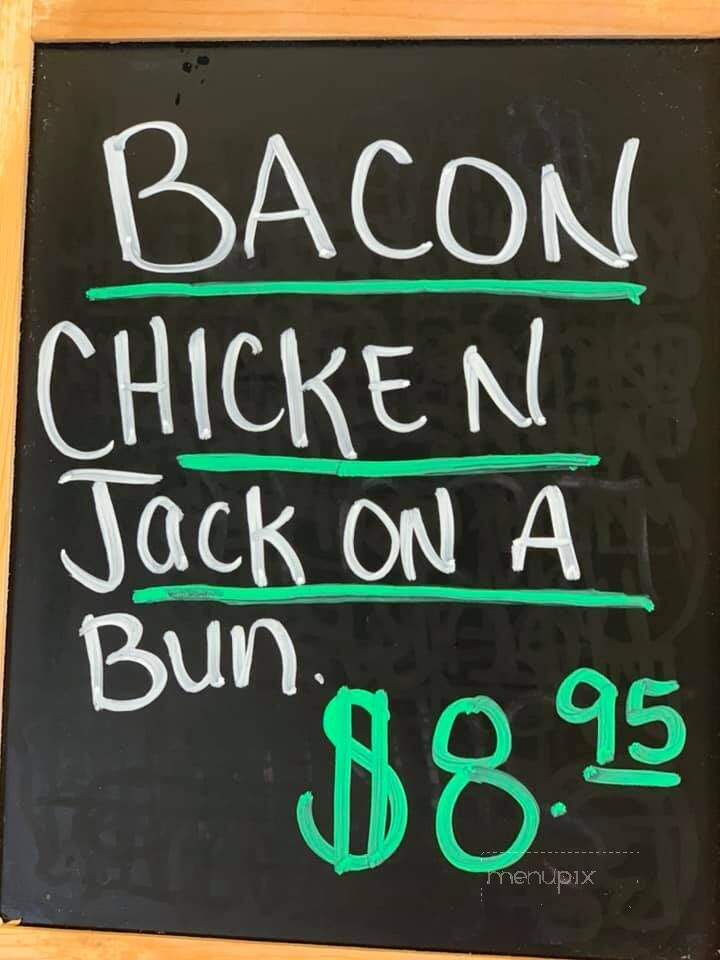 BACON
CHICKEN
Jack ON A
Bun.
$8.95
menupix